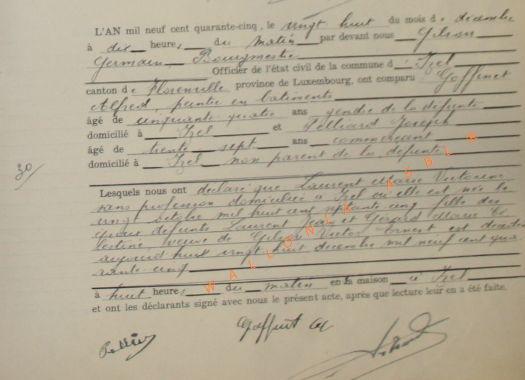 L'AN mil neuf cent quarante-cinq, le vingt huit du mois de décembre
à dix heures du matin par devant nous Gilson
Germain Bourgmestre
Officier de l'état civil de la commune d'Izel
canton de Florenville province de Luxembourg, ont comparu Goffinet
Alfred, peintre en bâtiments
âgé de cinquante quatre ans gendre de la défunte
domicilié à Izel et Pelliard Joseph
âgé de trente sept ans commerçant
domicilié à Izel non parent de la défunte
30/
Lesquels nous ont déclaré que Laurent Marie Victorine
sans profession domiciliée à Izel où elle est née le
vingt octobre mil huit cent septante cinq fille des
époux défunts Laurent Jean et Gérard Marie Cé
lestine, veuve de Gilson Victor Ernest est décédée
aujourd'huit vingt huit décembre mil neuf cent qua
rante cinq
à huit heures du matin en la maison à Izel
et ont les déclarants signé avec nous le présent acte, après que lecture leur en a été faite.
Goffinet
WALLONIA ASBL